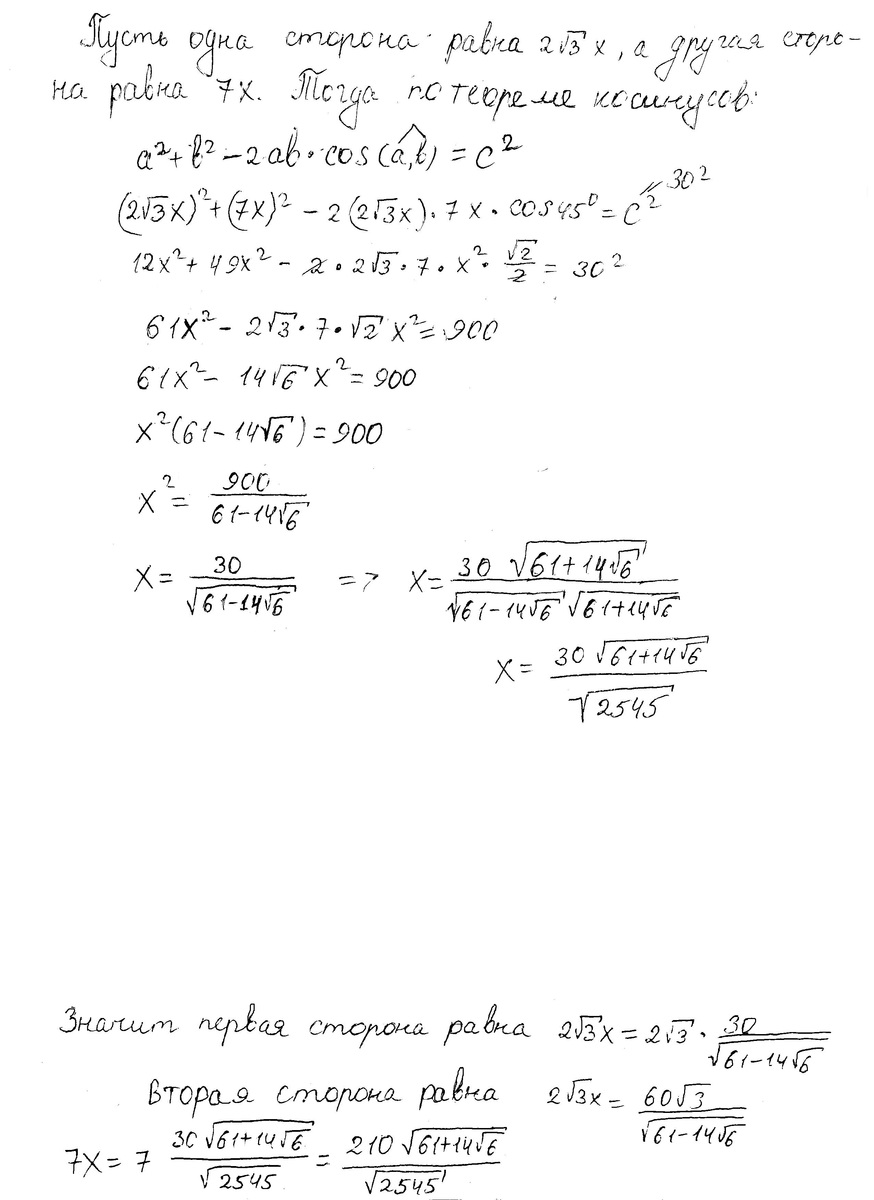 Пусть одна сторона равна 2√3 x, а другая сторо-
на равна 7x. Тогда по теореме косинусов:
a² + b² − 2ab · cos(a,^b) = c²
(2√3x)² + (7x)² − 2(2√3x) · 7x · cos45⁰ = c² = 30²
12x² + 49x² − 2 · 2√3 · 7 · x² · √2/2 = 30²
61x² − 2√3 · 7 · √2 x² = 900
61x² − 14√6 x² = 900
x²(61 − 14√6) = 900
x² = 900/(61−14√6)
x = 30/√(61−14√6) => x = 30 √(61+14√6) / (√(61−14√6) √(61+14√6))
x = 30 √(61+14√6) / √2545
Значит первая сторона равна 2√3x = 2√3 · 30/√(61−14√6)
Вторая сторона равна 2√3x = 60√3/√(61−14√6)
7x = 7 30√(61+14√6)/√2545 = 210 √(61+14√6)/√2545